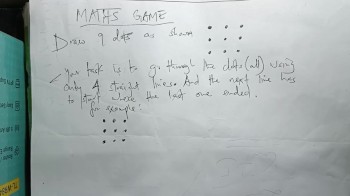 MATHS GAME
Draw 9 dots as shown
Your task is to go through the dots (all) using
only 4 straight lines. And the next line has
to start where the last one ended.
for example: